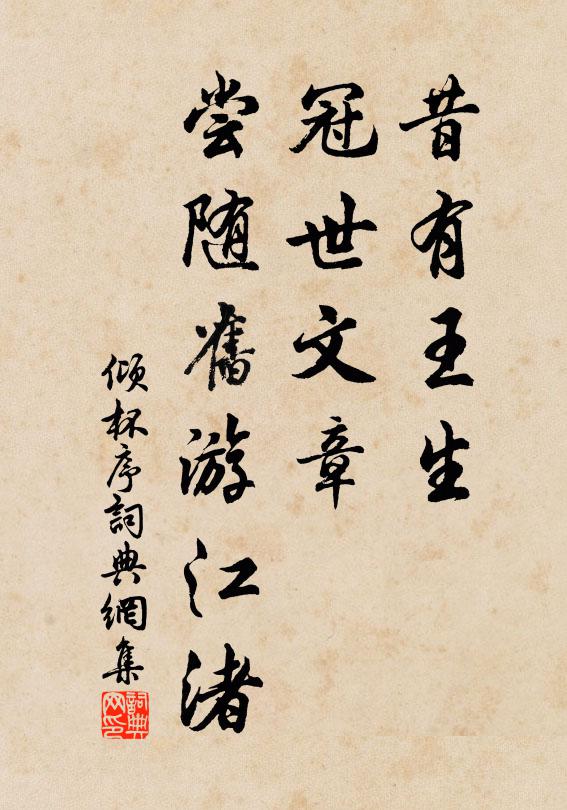 昔有王生
冠世文章
尝随舊游江渚
倾杯序詞典網集
詞典网印